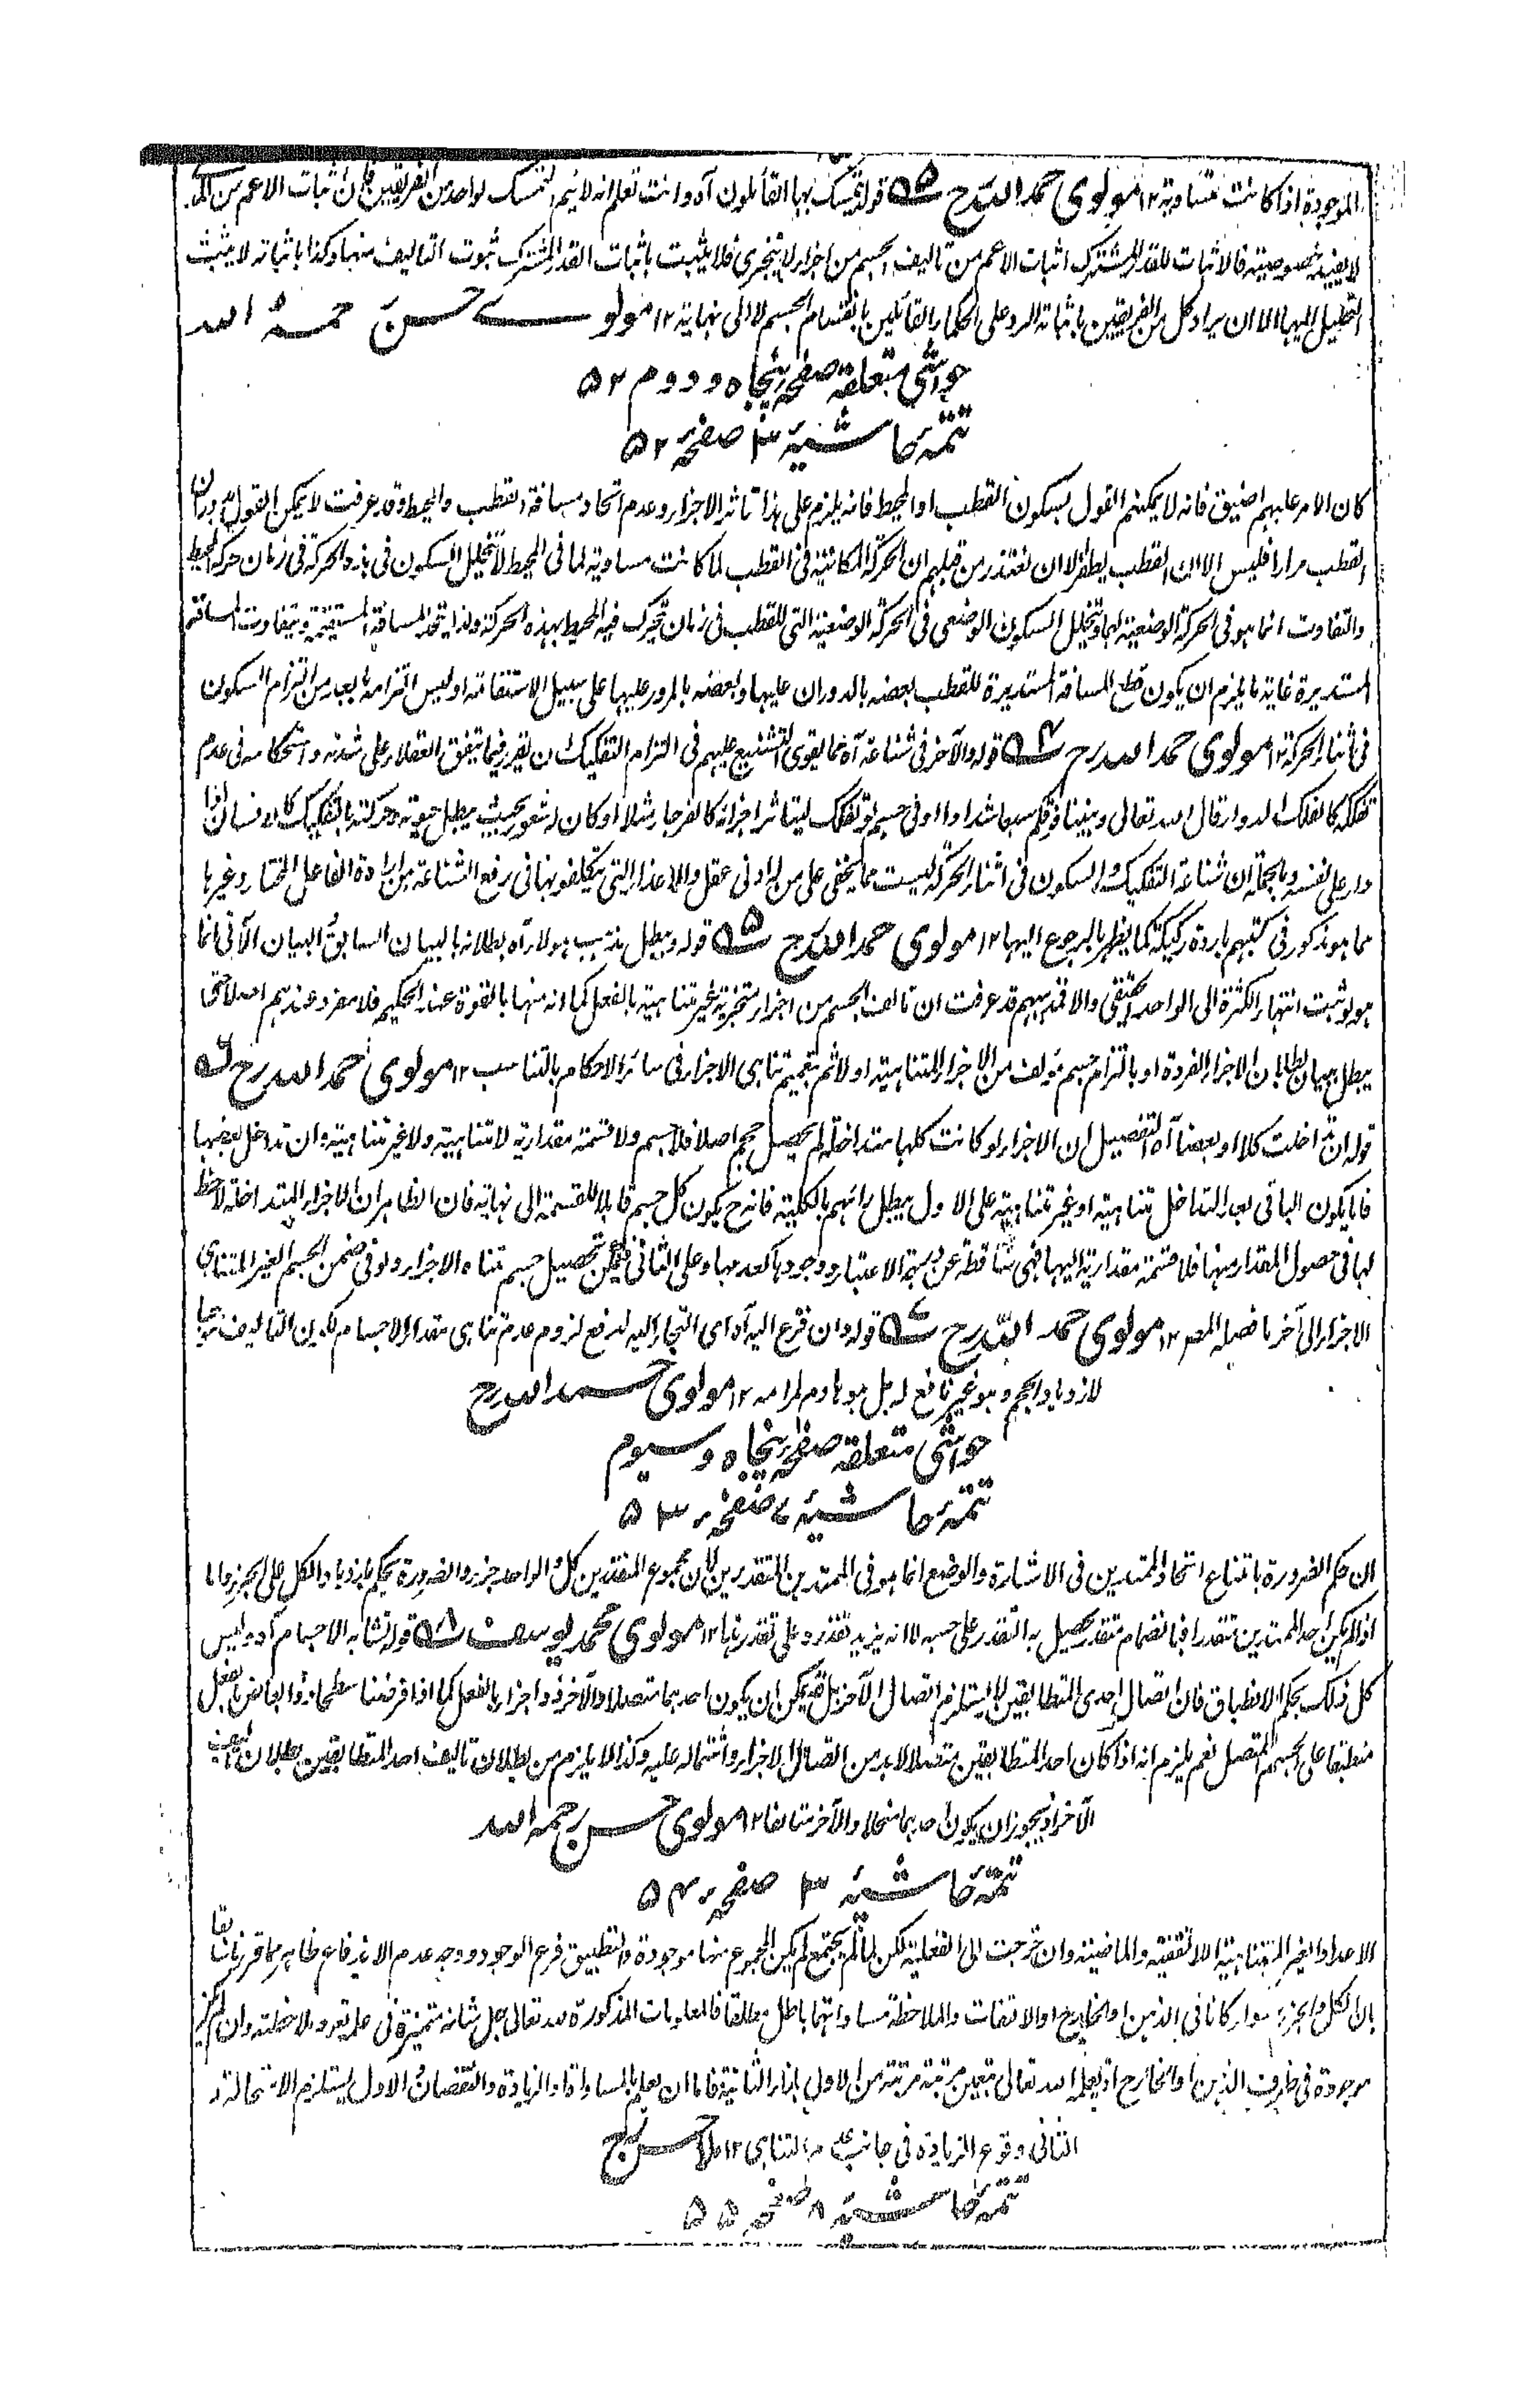 الموجودة اذا كانت متساوية ١٢ مولوى حمد الله رح ۵ قوله يتمسك بها القائلون آه وانت تعلم انه لا يتم التمسك لواحد من الفريقين فان اثبات الاعم من المدعى
لا يفيد بخصوصيته فالاثبات للقدر المشترك اثبات الاعم من تاليف الجسم من اجزاء لا يتجزى فلا يثبت باثبات القدر المشترك ثبوت التاليف منها وكذا باثباته لا يثبت
التحليل اليها الا ان يراد كل من الفريقين باثباته الرد على الحكماء القائلين بانقسام الجسم لا الى نهاية ١٢ مولوے حسن رحمه الله
حواشى متعلقة صفحه پنجاه و دوم ۵۲
تتمه حاشيه ۳ صفحه ۵۲
كان الامر عليهم اضيق فانه لا يمكنهم القول بسكون القطب او المحيط فانه يلزم على هذا تاثر الاجزاء وعدم اتحاد مسافة القطب والمحيط وقد عرفت لا يمكن القول بدوران
القطب مرارا فليس الا ان القطب يطفر الا ان نعتذر من قبلهم ان الحركة المكانية فى القطب لما كانت مساوية لما فى المحيط لا تتخلل السكون فى هذه الحركة فى زمان حركة المحيط
والتفاوت انما هو فى الحركة الوضعية لهما وتخلل السكون الوضعى فى الحركة الوضعية التى للقطب فى زمان تحرك فيه المحيط بهذه الحركة ولذا يتحد المسافة المستقيمة ويتفاوت المسافة
المستديرة غاية ما يلزم ان يكون قطع المسافة المستديرة للقطب بعضه بالدوران عليها وبعضه بالمرور عليها على سبيل الاستقامة وليس التزامه بابعد من التزام السكون
فى اثناء الحركة ١٢ مولوى حمد الله رح ۴ قوله والآخر فى شناعة آه مما يقوى التشنيع عليهم فى التزام التفكيك ان يقرر فيما يتفق العقلاء على شدته واستحكامه فى عدم
تفككه كالفلك الدوار قال الله تعالى وبنينا فوقكم سبعا شدادا او فى جسم لو تفكك ليتناثر اجزائه كالفرجار مثلا او كان له شعور بحيث يبطل حيوته وحركته بالتفكيك كالانسان اذا
دار على نفسه وبالجملة ان شناعة التفكيك والسكون فى اثناء الحركة ليست مما يخفى على من له ادنى عقل والاعذار التى يتكلفونها فى رفع الشناعة من ارادة الفاعل المختار وغيرها
مما هو مذكور فى كتبهم باردة ركيكة كما يظهر بالرجوع اليها ١٢ مولوى حمد الله رح ۵ قوله ويبطل مذهب هؤلاء آه بطلانه بالبيان السابق والبيان الآتى انما
هو لو ثبت انتهاء الكثرة الى الواحد الحقيقى والا فمذهبهم قد عرفت ان تالف الجسم من اجزاء متجزية غير متناهية بالفعل كما انه منها بالقوة عند الحكيم فلا مفرد عندهم اصلا حتى
يبطل ببيان بطلان الاجزاء الفردة او بالتزام جسم مؤلف من الاجزاء المتناهية اولا ثم تعميم تناهى الاجزاء فى سائر الاحكام بالتناسب ١٢ مولوى حمد الله رح ۶
قوله ان تداخلت كلا او بعضا آه التفصيل ان الاجزاء لو كانت كلها متداخلة لم يحصل حجم اصلا فلا جسم ولا قسمة مقدارية لا متناهية ولا غير متناهية وان تداخل بعضها
فاما يكون الباقى بعد التداخل متناهية او غير متناهية على الاول يبطل رائهم بالكلية فانه ح يكون كل جسم قابلا للقسمة الى نهاية فان الظاهر ان الاجزاء المتداخلة لا حظ
لها فى حصول المقدار منها فلا قسمة مقدارية اليها فهى ساقطة عن درجة الاعتبار ووجودها كعدمها وعلى الثانى فيمكن تحصيل جسم متناه الاجزاء ولو فى ضمن الجسم الغير المتناهى
الاجزاء الى آخر ما فصله المصر ١٢ مولوى حمد الله رح ۷ قوله وان فزع اليه آه اى التجاء اليه لدفع لزوم عدم تناهى مقدار الاجسام لكون التاليف موجبا
لازدياد الحجم وهو غير نافع له بل هو هادم لمرامه ١٢ مولوى حمد الله رح
حواشى متعلقة صفحه پنجاه و سيوم
تتمه حاشيه ۷ صفحه ۵۳
ان حكم الضرورة بامتناع اتحاد الممتدين فى الاشارة والوضع انما هو فى الممتدين المتقدرين لان مجموع المتقدرين كل والواحد جزء والضرورة يحكم بازدياد الكل على الجزء واما
اذا لم يكن احد الممتدين متقدرا فبانضمام متقدر يحصل به التقدر على حسبه لا انه يزيد تقدره على تقدرها ١٢ مولوى محمد يوسف ۸ قوله تشابه الاجسام آه وليس
كل ذلك بحكم الانطباق فان اتصال احدى المتطابقين لا يستلزم اتصال الآخر بل يمكن ان يكون احدهما متصلا والآخر ذو اجزاء بالفعل كما اذا فرضنا سطحا ذو ابعاض بالفعل
منطبقا على الجسم المتصل نعم يلزم انه اذا كان احد المتطابقين متصلا لا بد من اتصال الاجزاء واشتماله عليه وكذا لا يلزم من بطلان تاليف احد المتطابقين بطلان تاليف
الآخر اذ يجوز ان يكون احدهما منحلا والآخر متالفا ١٢ مولوى حسن رحمه الله
تتمه حاشيه ۳ صفحه ۵۴
الاعداد الغير المتناهية اللاتقفية والماضية وان خرجت الى الفعلية لكن لما لم يجتمع لم يكن المجموع منها موجودة والتطبيق فرع الوجود ووجه عدم الاندفاع ظاهر مما قررنا سابقا
بان الكل والجزء سواء كانا فى الذهن او الخارج او الالتفات والملاحظة مساواتهما باطل مطلقا فالمعلومات المذكورة لله تعالى جل شانه متميزة فى علمه تعالى وملاحظته وان لم تكن
موجودة فى ظرف الذهن او الخارج اذ يعلم الله تعالى بتعيين مرتبة مرتبة من الاولى بازاء الثانية فاما ان يعلم بالمساواة او الزيادة والنقصان والاول يستلزم الاستحالة و
الثانى وقوع الزيادة فى جانب عدم التناهى ١٢ ملا حسن رح
تتمه حاشيه ۸ صفحه ۵۵